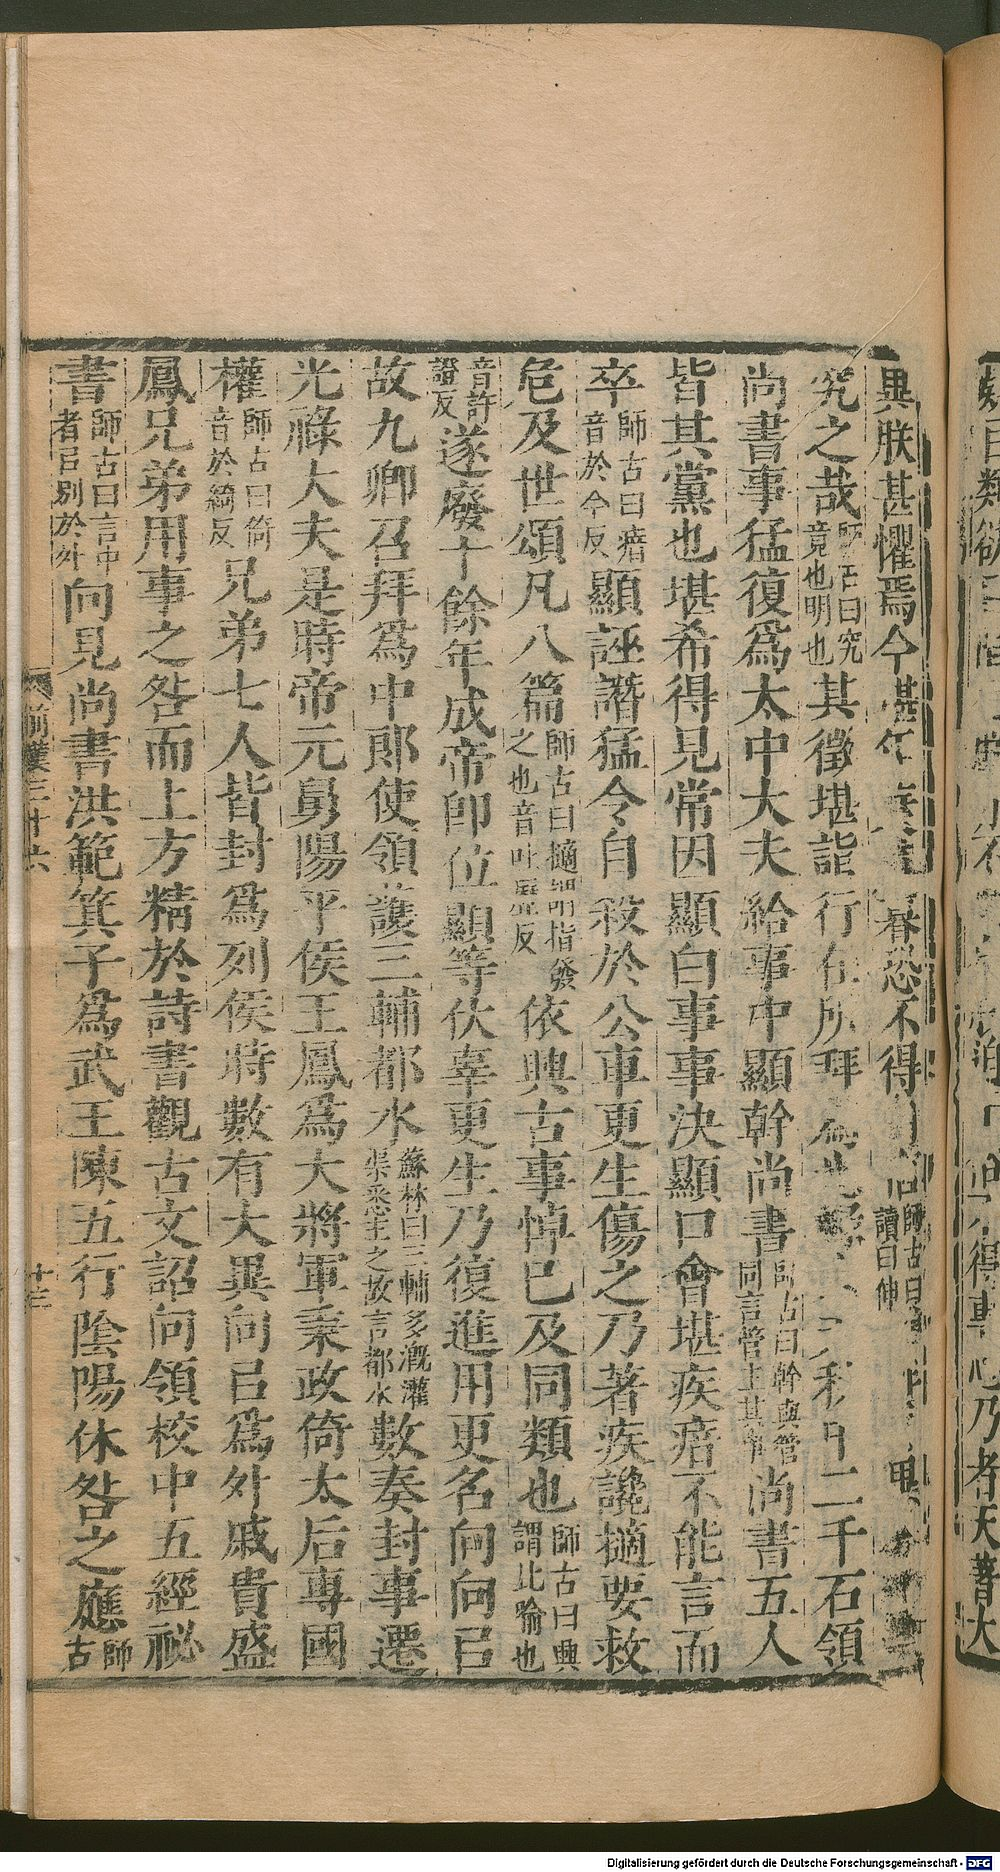 異朕甚懼焉今堪年衰歲暮恐不得自信師古曰信讀曰伸
究之哉師古曰究竟也明也其徵堪詣行在所拜爲光祿大夫秩中二千石領
尚書事猛復爲太中大夫給事中顯幹尚書師古曰幹與管同言管主其事尚書五人
皆其黨也堪希得見常因顯白事事決顯口會堪疾瘖不能言而
卒師古曰瘖音於今反顯誣譖猛令自殺於公車更生傷之乃著疾讒擿要救
危及世頌凡八篇師古曰擿謂指發之也音吐歷反依興古事悼己及同類也師古曰興謂比喻也
音許證反遂廢十餘年成帝即位顯等伏辜更生乃復進用更名向向㠯
故九卿召拜爲中郎使領護三輔都水蘇林曰三輔多溉灌渠悉主之故言都水數奏封事遷
光祿大夫是時帝元舅陽平侯王鳳爲大將軍秉政倚太后專國
權師古曰倚音於綺反兄弟七人皆封爲列侯時數有大異向㠯爲外戚貴盛
鳳兄弟用事之咎而上方精於詩書觀古文詔向領校中五經祕
書師古曰言中者㠯別於外向見尚書洪範箕子爲武王陳五行陰陽休咎之應師古
前漢三十六
十三
Digitalisierung gefördert durch die Deutsche Forschungsgemeinschaft - DFG